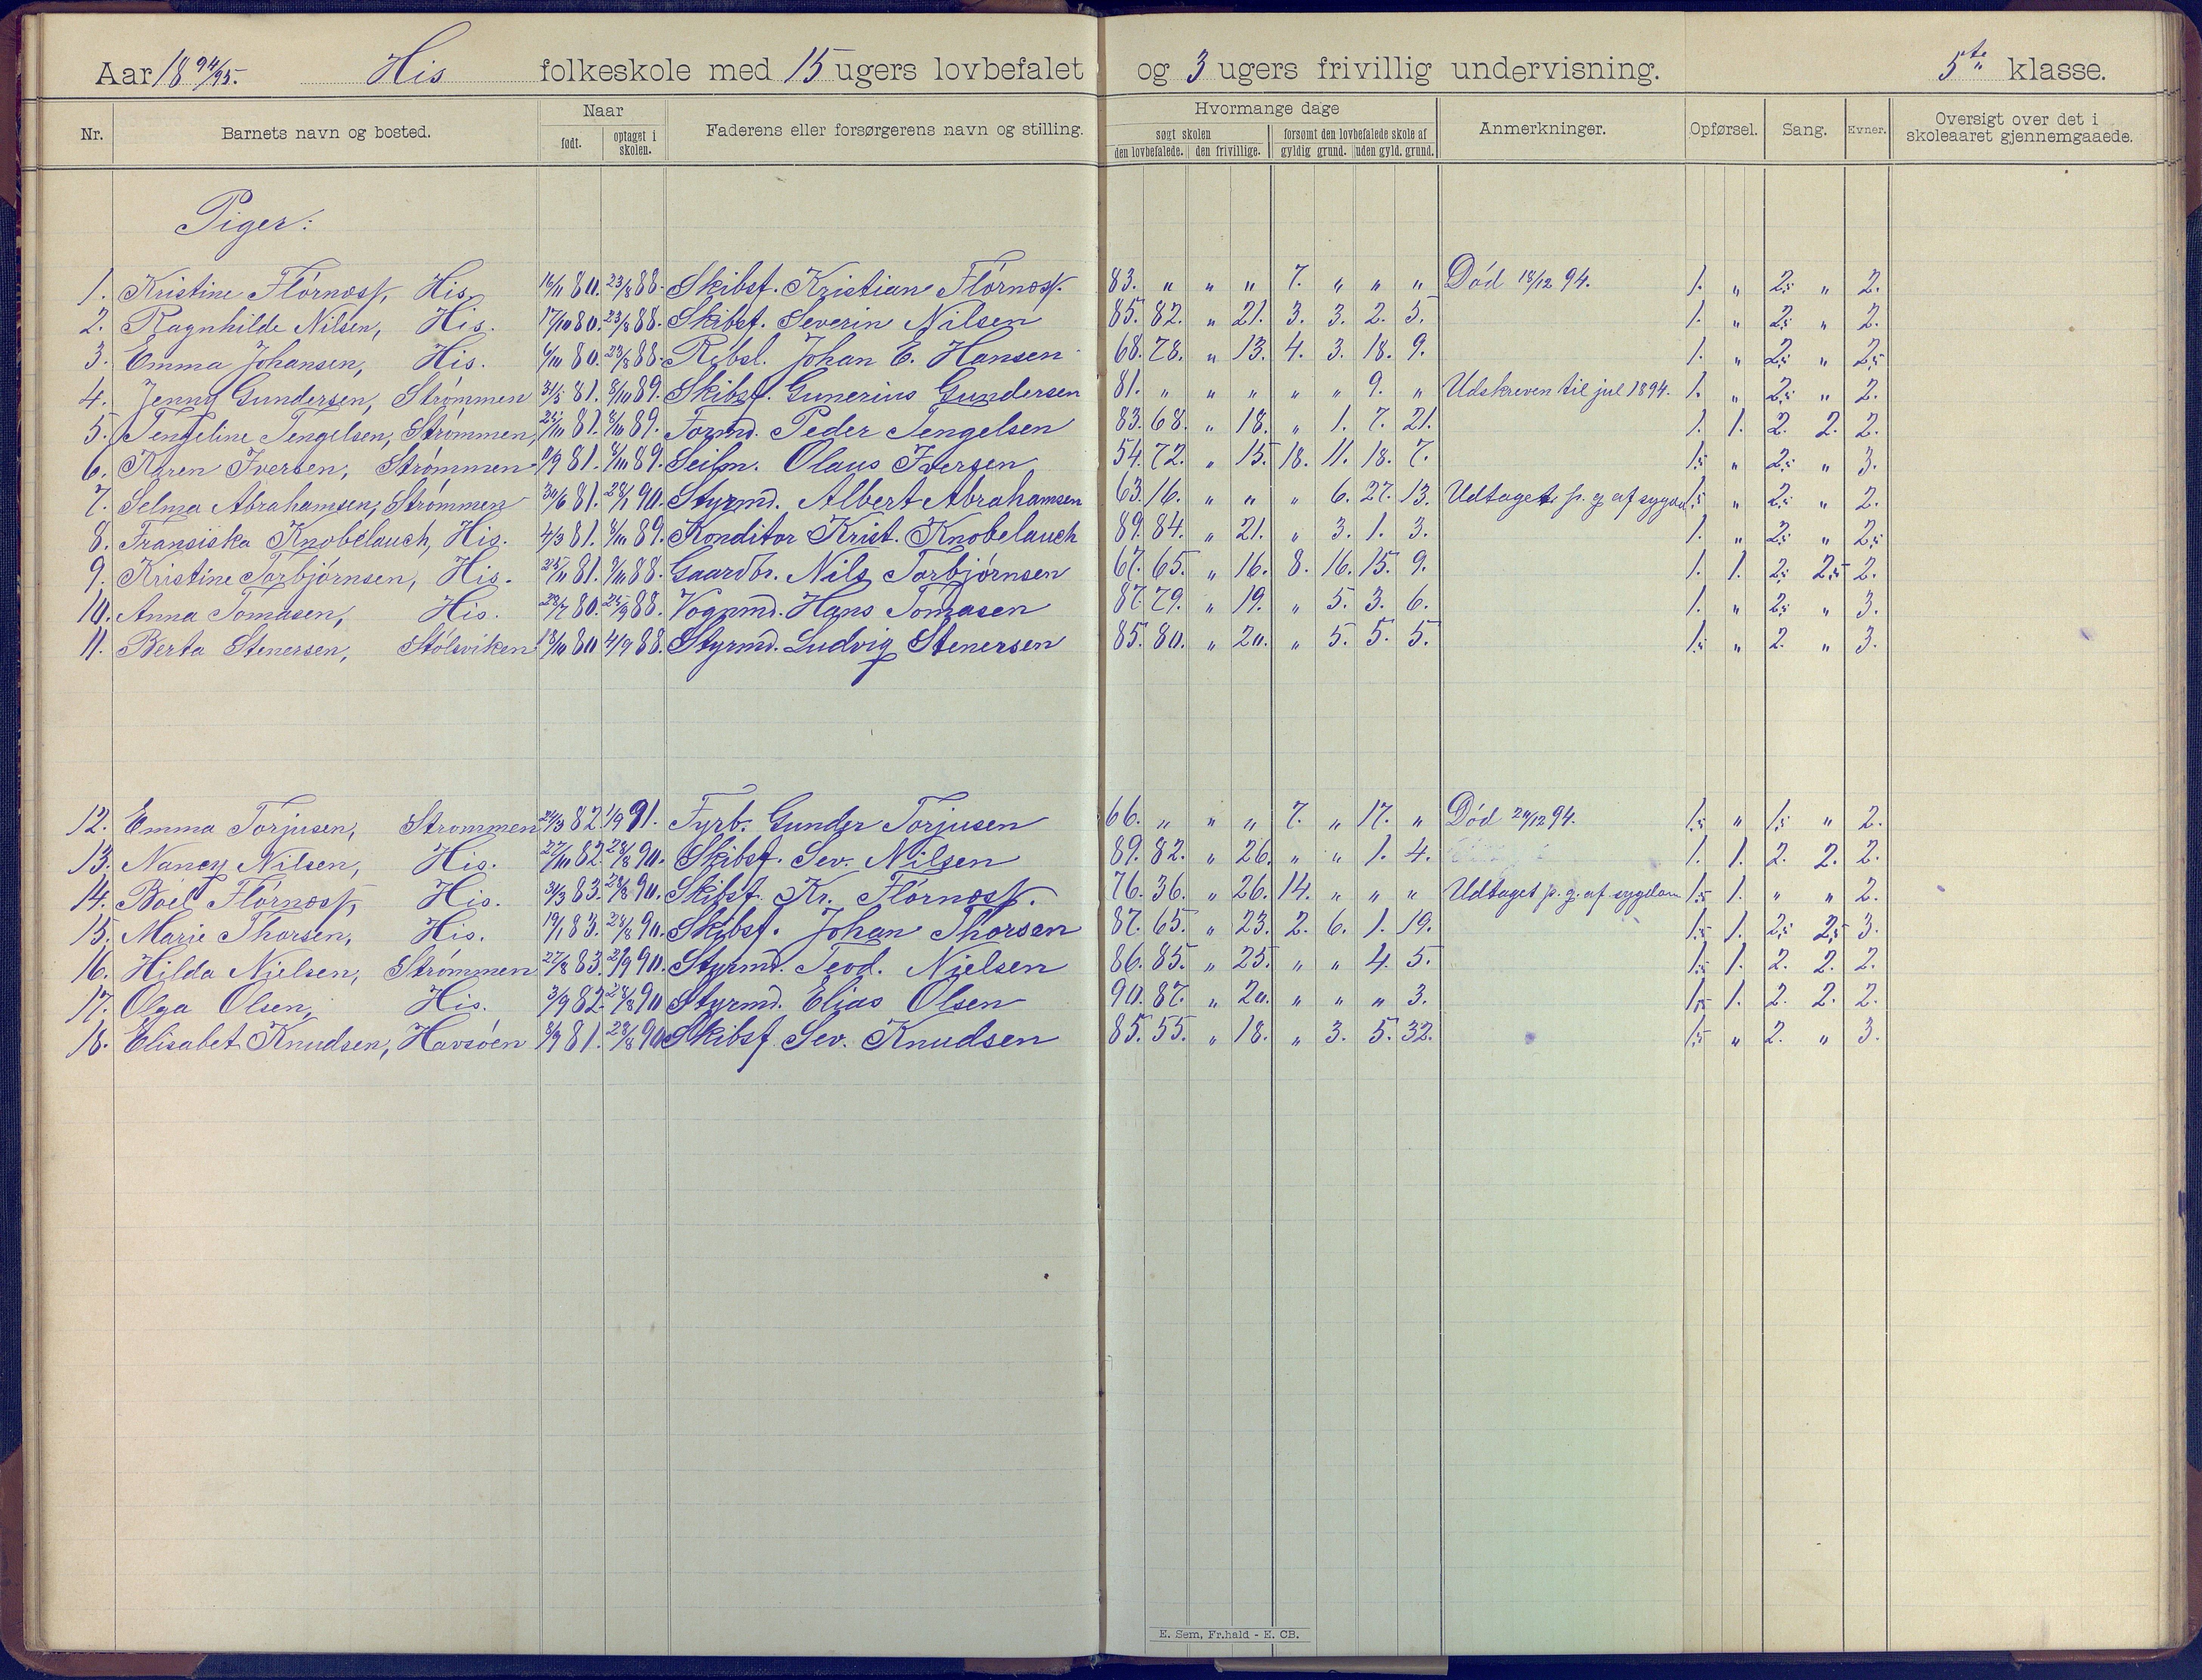 Aar 18 94/95. His folkeskole med 15 ugers lovbefalet og 3 ugers frivillig undervisning. 5te klasse.
Nr. Barnets navn og bosted. Naar født. optaget i skolen. Faderens eller forsørgerens navn og stilling. Hvormange dage søgt skolen den lovbefalede. den frivillige. forsømt den lovbefalede skole af gyldig grund. uden gyld. grund. Anmerkninger. Opførsel. Sang. Evner. Oversigt over det i skoleaaret gjennemgaaede.
Piger:
1. Kristine Flørnæss, His. 16/11 80. 23/8 88. Skibsf. Kristian Flørnæss. 83. " " " 7. " " " Død 18/12 94. 1. " 2,5 " 2.
2. Ragnhilde Nilsen, His. 17/10 80. 23/8 88. Skibsf. Severin Nilsen 85. 82. " 21. 3. 3. 2. 5. 1. " 2,5 " 2.
3. Emma Johansen, His. 6/10 80. 23/8 88. Rebsl. Johan E. Hansen 68. 78. " 13. 4. 3. 18. 9. 1. " 2,5 " 2,5
4. Jenny Gundersen, Strømmen 31/5 81. 8/10 89. Skibsf. Gunerius Gundersen 81. " " " " " 9. " Udskreven til jul 1894. 1. " 2,5 " 2.
5. Tengeline Tengelsen, Strømmen, 81. 8/10 89. Formd. Peder Tengelsen 83. 68. " 18. " 1. 7. 21. 1. 1. 2. 2. 2.
6. Karen Iversen, Strømmen 81. 8/10 89. Seilm. Olaus Iversen 54. 72. " 15. 18. 11. 18. 7. 1,5 " 2,5 " 3.
7. Selma Abrahamsen, Strømmen 30/6 81. 28/1 90. Styrmd. Albert Abrahamsen 63. 16. " " " 6. 27. 13. Udtaget p. g. af sygd. 1,5 " 2,5 " 2.
8. Fransiska Knobelauch, His. 4/3 81. 8/10 89. Konditor Krist. Knobelauch 89. 84. " 21. " 3. 1. 3. 1. " 2,5 " 2,5
9. Kristine Torbjørnsen, His. 25/11 81. 9/10 88. Gaardbr. Nils Torbjørnsen 67. 65. " 16. 8. 16. 15. 9. 1. 1. 2,5 2,5 2.
10. Anna Tomasen, His. 28/7 80. 25/9 88. Vognmd. Hans Tomasen 87. 79. " 19. " 5. 3. 6. 1. " 2,5 " 3.
11. Berta Stenersen, Stølsviken 18/10 80 4/9 88. Styrmd. Ludvig Stenersen 85. 80. " 20. " 5. 5. 5. 1,5 " 2. " 3.
12. Emma Torjusen, Strømmen 24/3 82. 1/9 91. Fyrb. Gunder Torjusen 66. " " " 7. " 17. " Død 20/12 94. 1,5 " 1,5 " 2.
13. Nancy Nilsen, His. 27/10 82. 28/8 90. Skibsf. Sev. Nilsen 89. 82. " 26. " " 1. 4. 1. 1. 2. 2. 2.
14. Boel Flørnæss, His. 31/3 83. 28/8 90. Skibsf. Kr. Flørnæss. 76. 36. " 26. 14. " " " Udtaget p. g. af sygdom 1,5 1. " " 2.
15. Marie Thorsen, His. 19/1 83. 28/8 90. Skibsf. Johan Thorsen 87. 65. " 23. 2. 6. 1. 19. 1,5 1. 2,5 2,5 3.
16. Hilda Nielsen, Strømmen 27/8 83. 2/9 90. Styrmd. Teod. Nielsen 86. 85. " 25. " " 4. 5. 1,5 1. 2. 2. 2.
17. Olga Olsen, His. 3/9 82. 28/8 90 Styrmd. Elias Olsen 90. 87. " 20. " " " 3. 1,5 1. 2. 2. 2.
18. Elisabet Knudsen, Havsøen 8/9 81. 28/8 90 Skibsf. Sev. Knudsen 85. 55. " 18. " 3. 5. 32. 1,5 " 2. " 3.
E. Sem, Fr.hald - E. CB.